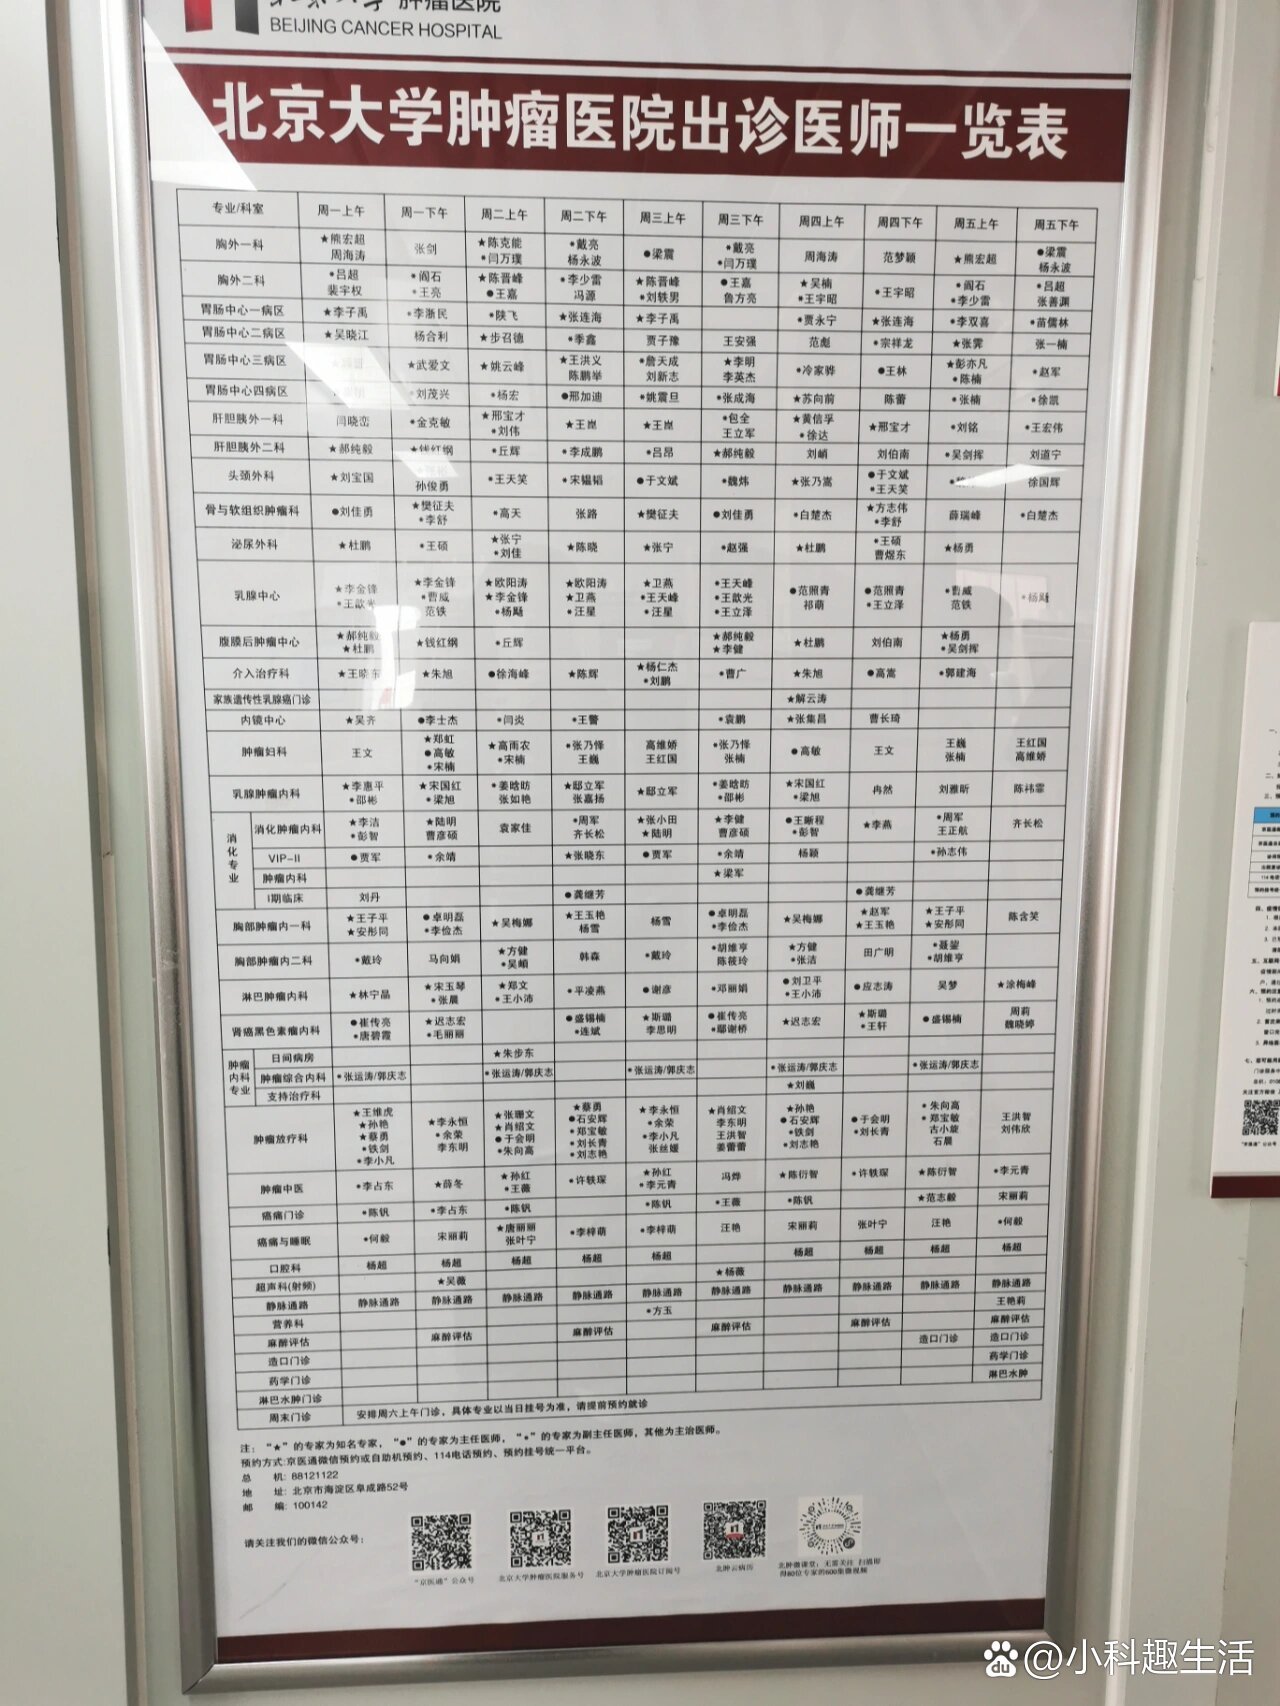 肿瘤医院
BEIJING CANCER HOSPITAL
北京大学肿瘤医院出诊医师一览表
专业/科室 周一上午 周一下午 周二上午 周二下午 周三上午 周三下午 周四上午 周四下午 周五上午 周五下午
胸外一科 ★熊宏超 周海涛 张剑 ★陈克能 •闫万璞 •戴亮 杨永波 ●梁震 •戴亮 •闫万璞 周海涛 范梦颖 ★熊宏超 ●梁震 杨永波
胸外二科 •吕超 裴宇权 •阎石 •王亮 ★陈晋峰 ●王嘉 •李少雷 冯源 ★陈晋峰 •刘轶男 ●王嘉 鲁方亮 ★吴楠 •王宇昭 •王宇昭 •阎石 •李少雷 •吕超 张善渊
胃肠中心一病区 ★李子禹 •李浙民 •陕飞 ★张连海 ★李子禹 •贾永宁 ★张连海 •李双喜 •苗儒林
胃肠中心二病区 ★吴晓江 杨合利 ★步召德 •季鑫 贾子豫 王安强 范彪 •宗祥龙 ★张霁 张一楠
胃肠中心三病区 ★武爱文 ★姚云峰 ★王洪义 陈鹏举 •詹天成 刘新志 ★李明 李英杰 •冷家骅 ●王林 ★彭亦凡 •陈楠 •赵军
胃肠中心四病区 •刘茂兴 •杨宏 ●邢加迪 •姚震旦 •张成海 ★苏向前 陈蕾 •张楠 •徐凯
肝胆胰外一科 闫晓峦 •金克敏 ★邢宝才 •刘伟 ★王崑 ★王崑 •包全 王立军 ★黄信孚 •徐达 ★邢宝才 •刘铭 •王宏伟
肝胆胰外二科 ★郝纯毅 ★钱红纲 •丘辉 •李成鹏 •吕昂 ★郝纯毅 刘峭 刘伯南 •吴剑挥 刘道宁
头颈外科 ★刘宝国 孙俊勇 •王天笑 •宋韫韬 ●于文斌 •魏炜 ★张乃嵩 ●于文斌 •王天笑 徐国辉
骨与软组织肿瘤科 ●刘佳勇 ★樊征夫 •李舒 •高天 张路 ★樊征夫 ●刘佳勇 •白楚杰 ★方志伟 •李舒 薛瑞峰 •白楚杰
泌尿外科 ★杜鹏 •王硕 ★张宁 •刘佳 ★陈晓 ★张宁 •赵强 ★杜鹏 •王硕 曹煜东 ★杨勇
乳腺中心 ★李金锋 •王歆光 ★李金锋 •曹威 范铁 ★欧阳涛 ★李金锋 •杨飏 ★欧阳涛 ★卫燕 •汪星 ★卫燕 •王天峰 •汪星 •王天峰 •王歆光 •王立泽 ●范照青 祁萌 ●范照青 •王立泽 •曹威 范铁 •杨飏
腹膜后肿瘤中心 ★郝纯毅 ★杜鹏 ★钱红纲 •丘辉 ★郝纯毅 ★李健 ★杜鹏 刘伯南 ★杨勇 •吴剑挥
介入治疗科 ★王晓东 ★朱旭 ●徐海峰 ★陈辉 ★杨仁杰 •刘鹏 •曹广 ★朱旭 ●高嵩 •郭建海
家族遗传性乳腺癌门诊 ★解云涛
内镜中心 ★吴齐 ●李士杰 •闫炎 •王警 •袁鹏 ★张集昌 曹长琦
肿瘤妇科 王文 ★郑虹 ●高敏 •宋楠 ★高雨农 •宋楠 •张乃怿 王巍 高维娇 王红国 •张乃怿 张楠 ●高敏 王文 王巍 张楠 王红国 高维娇
乳腺肿瘤内科 ★李惠平 •邵彬 ★宋国红 •梁旭 •姜晗昉 张如艳 ★邸立军 张嘉扬 ★邸立军 •姜晗昉 •邵彬 ★宋国红 •梁旭 冉然 刘雅昕 陈祎霏
消化专业
消化肿瘤内科 ★李洁 •彭智 ★陆明 曹彦硕 袁家佳 •周军 齐长松 ★张小田 ★陆明 ★李健 曹彦硕 ●王晰程 •彭智 ★李燕 •周军 王正航 齐长松
VIP-II ●贾军 •余靖 ★张晓东 ●贾军 •余靖 杨颖 •孙志伟
肿瘤内科 ★梁军
I期临床 刘丹 ●龚继芳 ●龚继芳
胸部肿瘤内一科 ★王子平 ★安彤同 ●卓明磊 •李俭杰 ★吴梅娜 ★王玉艳 杨雪 杨雪 ●卓明磊 •李俭杰 ★吴梅娜 ★赵军 ★王玉艳 ★王子平 ★安彤同 陈含笑
胸部肿瘤内二科 •戴玲 马向娟 ★方健 韩森 •戴玲 •胡维亨 陈筱玲 ★方健 •张洁 田广明 •聂鋆 •胡维亨
淋巴肿瘤内科 ★林宁晶 ★宋玉琴 •张晨 ★郑文 •王小沛 •平凌燕 ●谢彦 •邓丽娟 ●刘卫平 •王小沛 ●应志涛 吴梦 ★涂梅峰
肾癌黑色素瘤内科 ●崔传亮 •唐碧霞 ★迟志宏 •毛丽丽 ●盛锡楠 •连斌 ★斯璐 李思明 ●崔传亮 •鄢谢桥 ★迟志宏 ★斯璐 •王轩 ●盛锡楠 周莉 魏晓婷
肿瘤内科专业
日间病房 ★朱步东
肿瘤综合内科 •张运涛/郭庆志 •张运涛/郭庆志 •张运涛/郭庆志 •张运涛/郭庆志 •张运涛/郭庆志
支持治疗科 ★刘巍
肿瘤放疗科 ★王维虎 ★孙艳 ★蔡勇 •铁剑 •李小凡 ★李永恒 •余荣 李东明 ★张珊文 ★肖绍文 ●于会明 •朱向高 ★蔡勇 ●石安辉 •郑宝敏 •刘长青 •刘志艳 ★李永恒 •余荣 •李小凡 张丝媛 ★肖绍文 李东明 王洪智 姜蕾蕾 ★孙艳 ●石安辉 •铁剑 •刘志艳 ●于会明 •刘长青 •朱向高 •郑宝敏 古小旋 石晨 王洪智 刘伟欣
肿瘤中医 •李占东 ★薛冬 ★孙红 •王薇 •许轶琛 ★孙红 •李元青 冯烨 ★陈衍智 •许轶琛 ★陈衍智 •李元青
癌痛门诊 •陈钒 •李占东 •陈钒 •陈钒 •王薇 •陈钒 ★范志毅 宋丽莉
癌痛与睡眠 •何毅 宋丽莉 ★唐丽丽 张叶宁 •李梓萌 •李梓萌 汪艳 宋丽莉 张叶宁 汪艳 •何毅
口腔科 杨超 杨超 杨超 杨超 杨超 杨超 杨超 杨超 杨超
超声科(射频) ★吴薇 ★杨薇
静脉通路 静脉通路 静脉通路 静脉通路 静脉通路 静脉通路 静脉通路 静脉通路 静脉通路 静脉通路 静脉通路
营养科 •方玉 王艳莉
麻醉评估 麻醉评估 麻醉评估 麻醉评估 麻醉评估 麻醉评估
造口门诊 造口门诊 造口门诊
药学门诊 药学门诊
淋巴水肿门诊 淋巴水肿
周末门诊 安排周六上午门诊，具体专业以当日挂号为准，请提前预约就诊
注：“★”的专家为知名专家，“●”的专家为主任医师，“•”的专家为副主任医师，其他为主治医师。
预约方式:京医通微信预约或自助机预约、114电话预约、预约挂号统一平台。
总 机: 88121122
地 址: 北京市海淀区阜成路52号
邮 编: 100142
请关注我们的微信公众号：
“京医通”公众号 北京大学肿瘤医院服务号 北京大学肿瘤医院订阅号 北肿云病历 北肿微课堂：无需关注 扫描即得80位专家的600集微视频
@小科趣生活